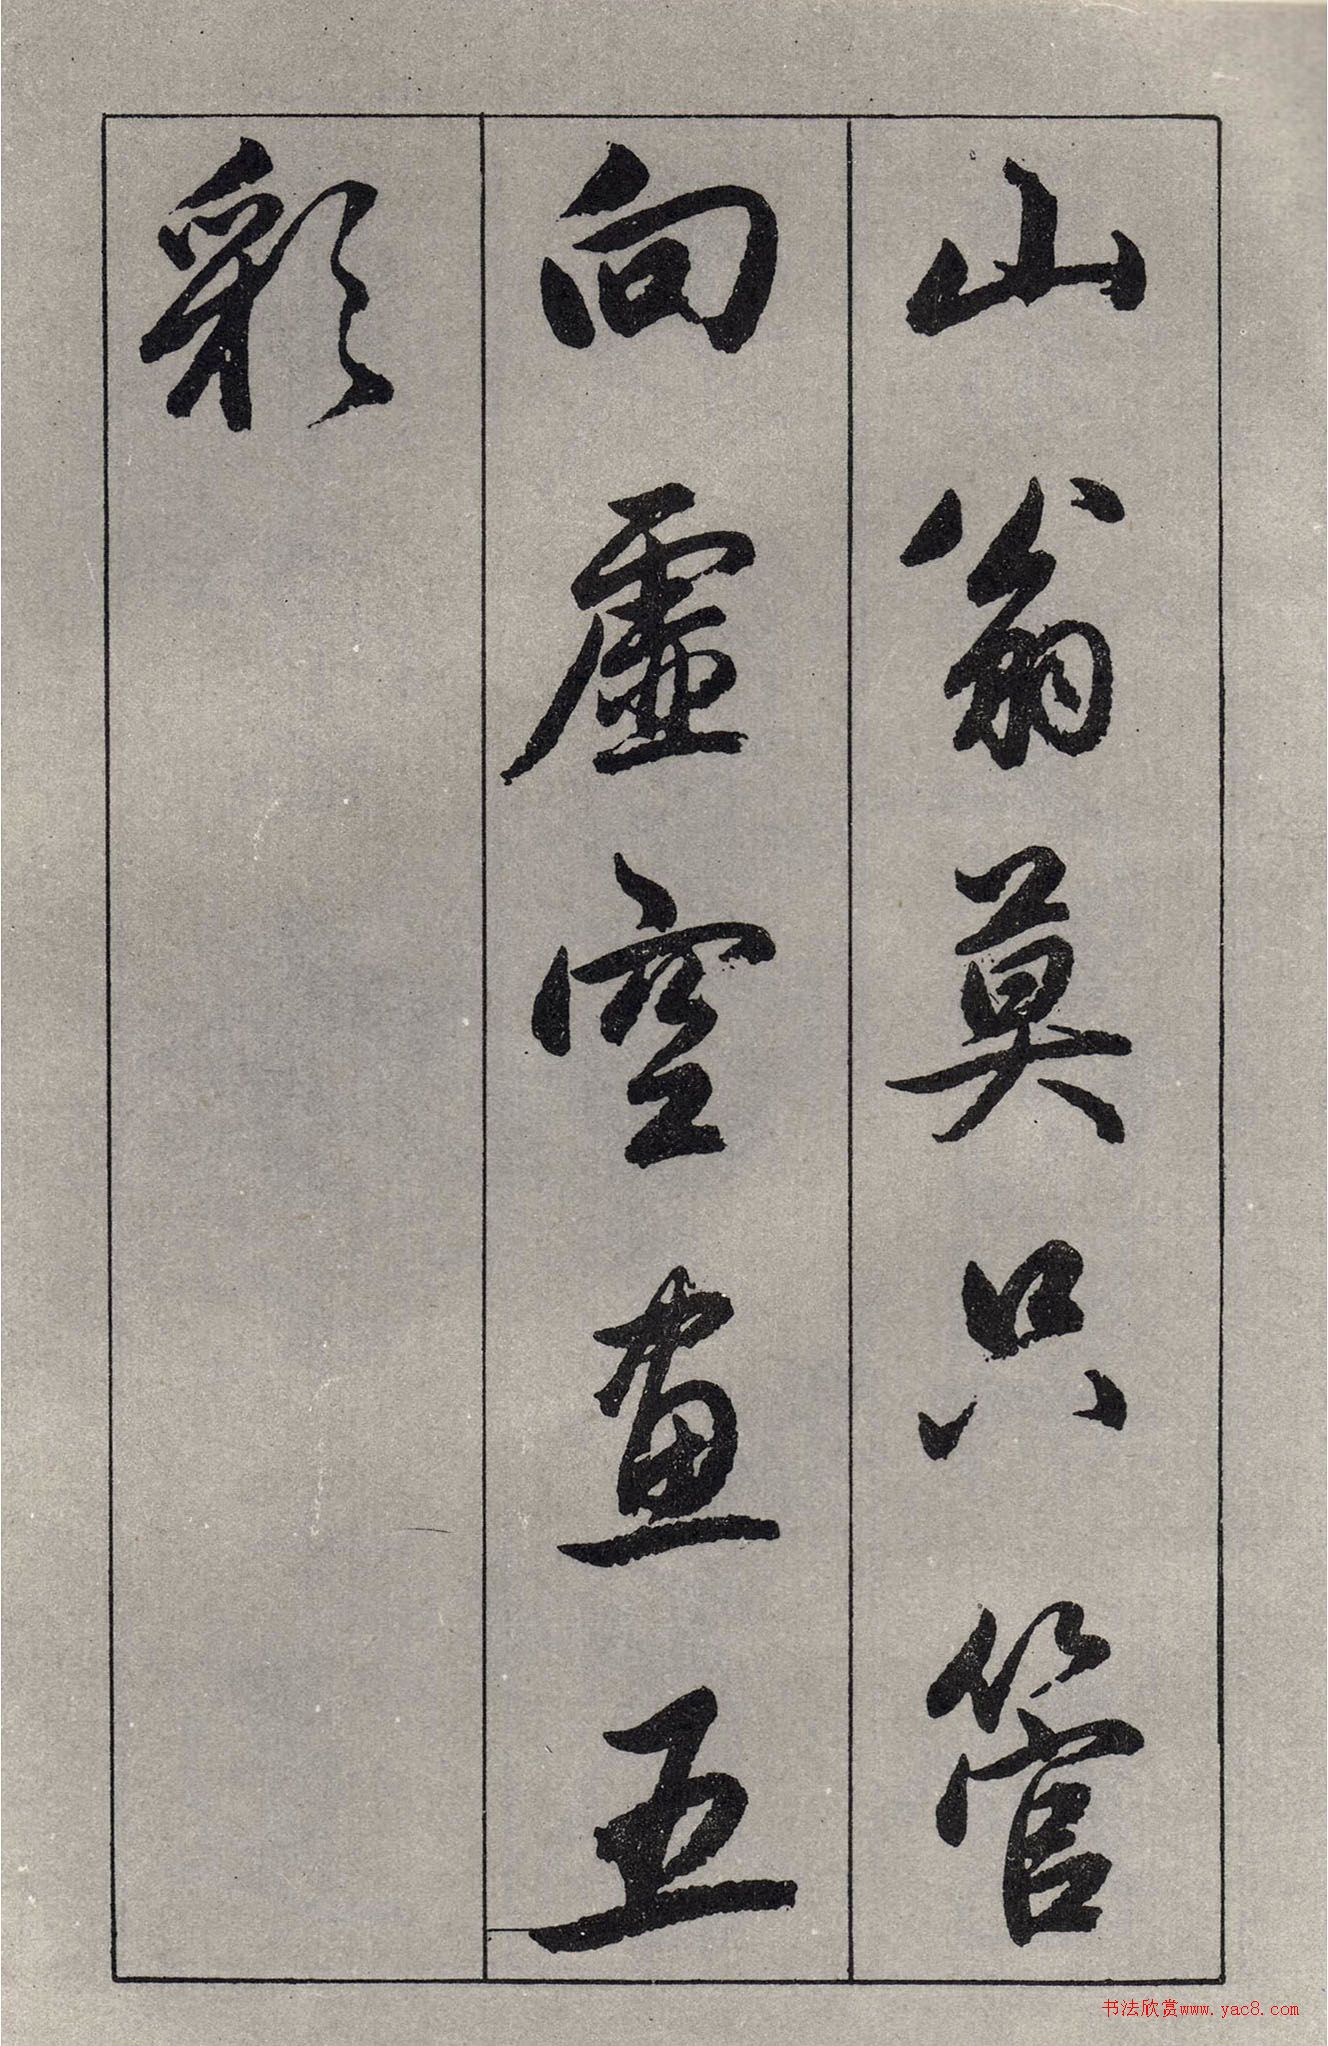 山翁莫只管
向虛空畫五
彩
书法欣赏www.yac8.com